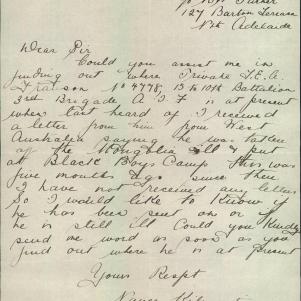 c/o Mrs Turner
127 Barton Terrace
Nth Adelaide
Dear Sir
Could you assist me in
finding out where Private T.E.A.
No 4778, 15 10th Battalion
3rd Brigade A I F is at present
when last heard of I received
a letter from him from West
Australia saying he was taken
of the ill & put
at Black Boys Camp this was
five months ago since then
I have not received any letter
So I would like to know if
he has been sent on or if
he is still ill Could you kindly
send me word as soon as you
find out where he is at present
Yours Respt